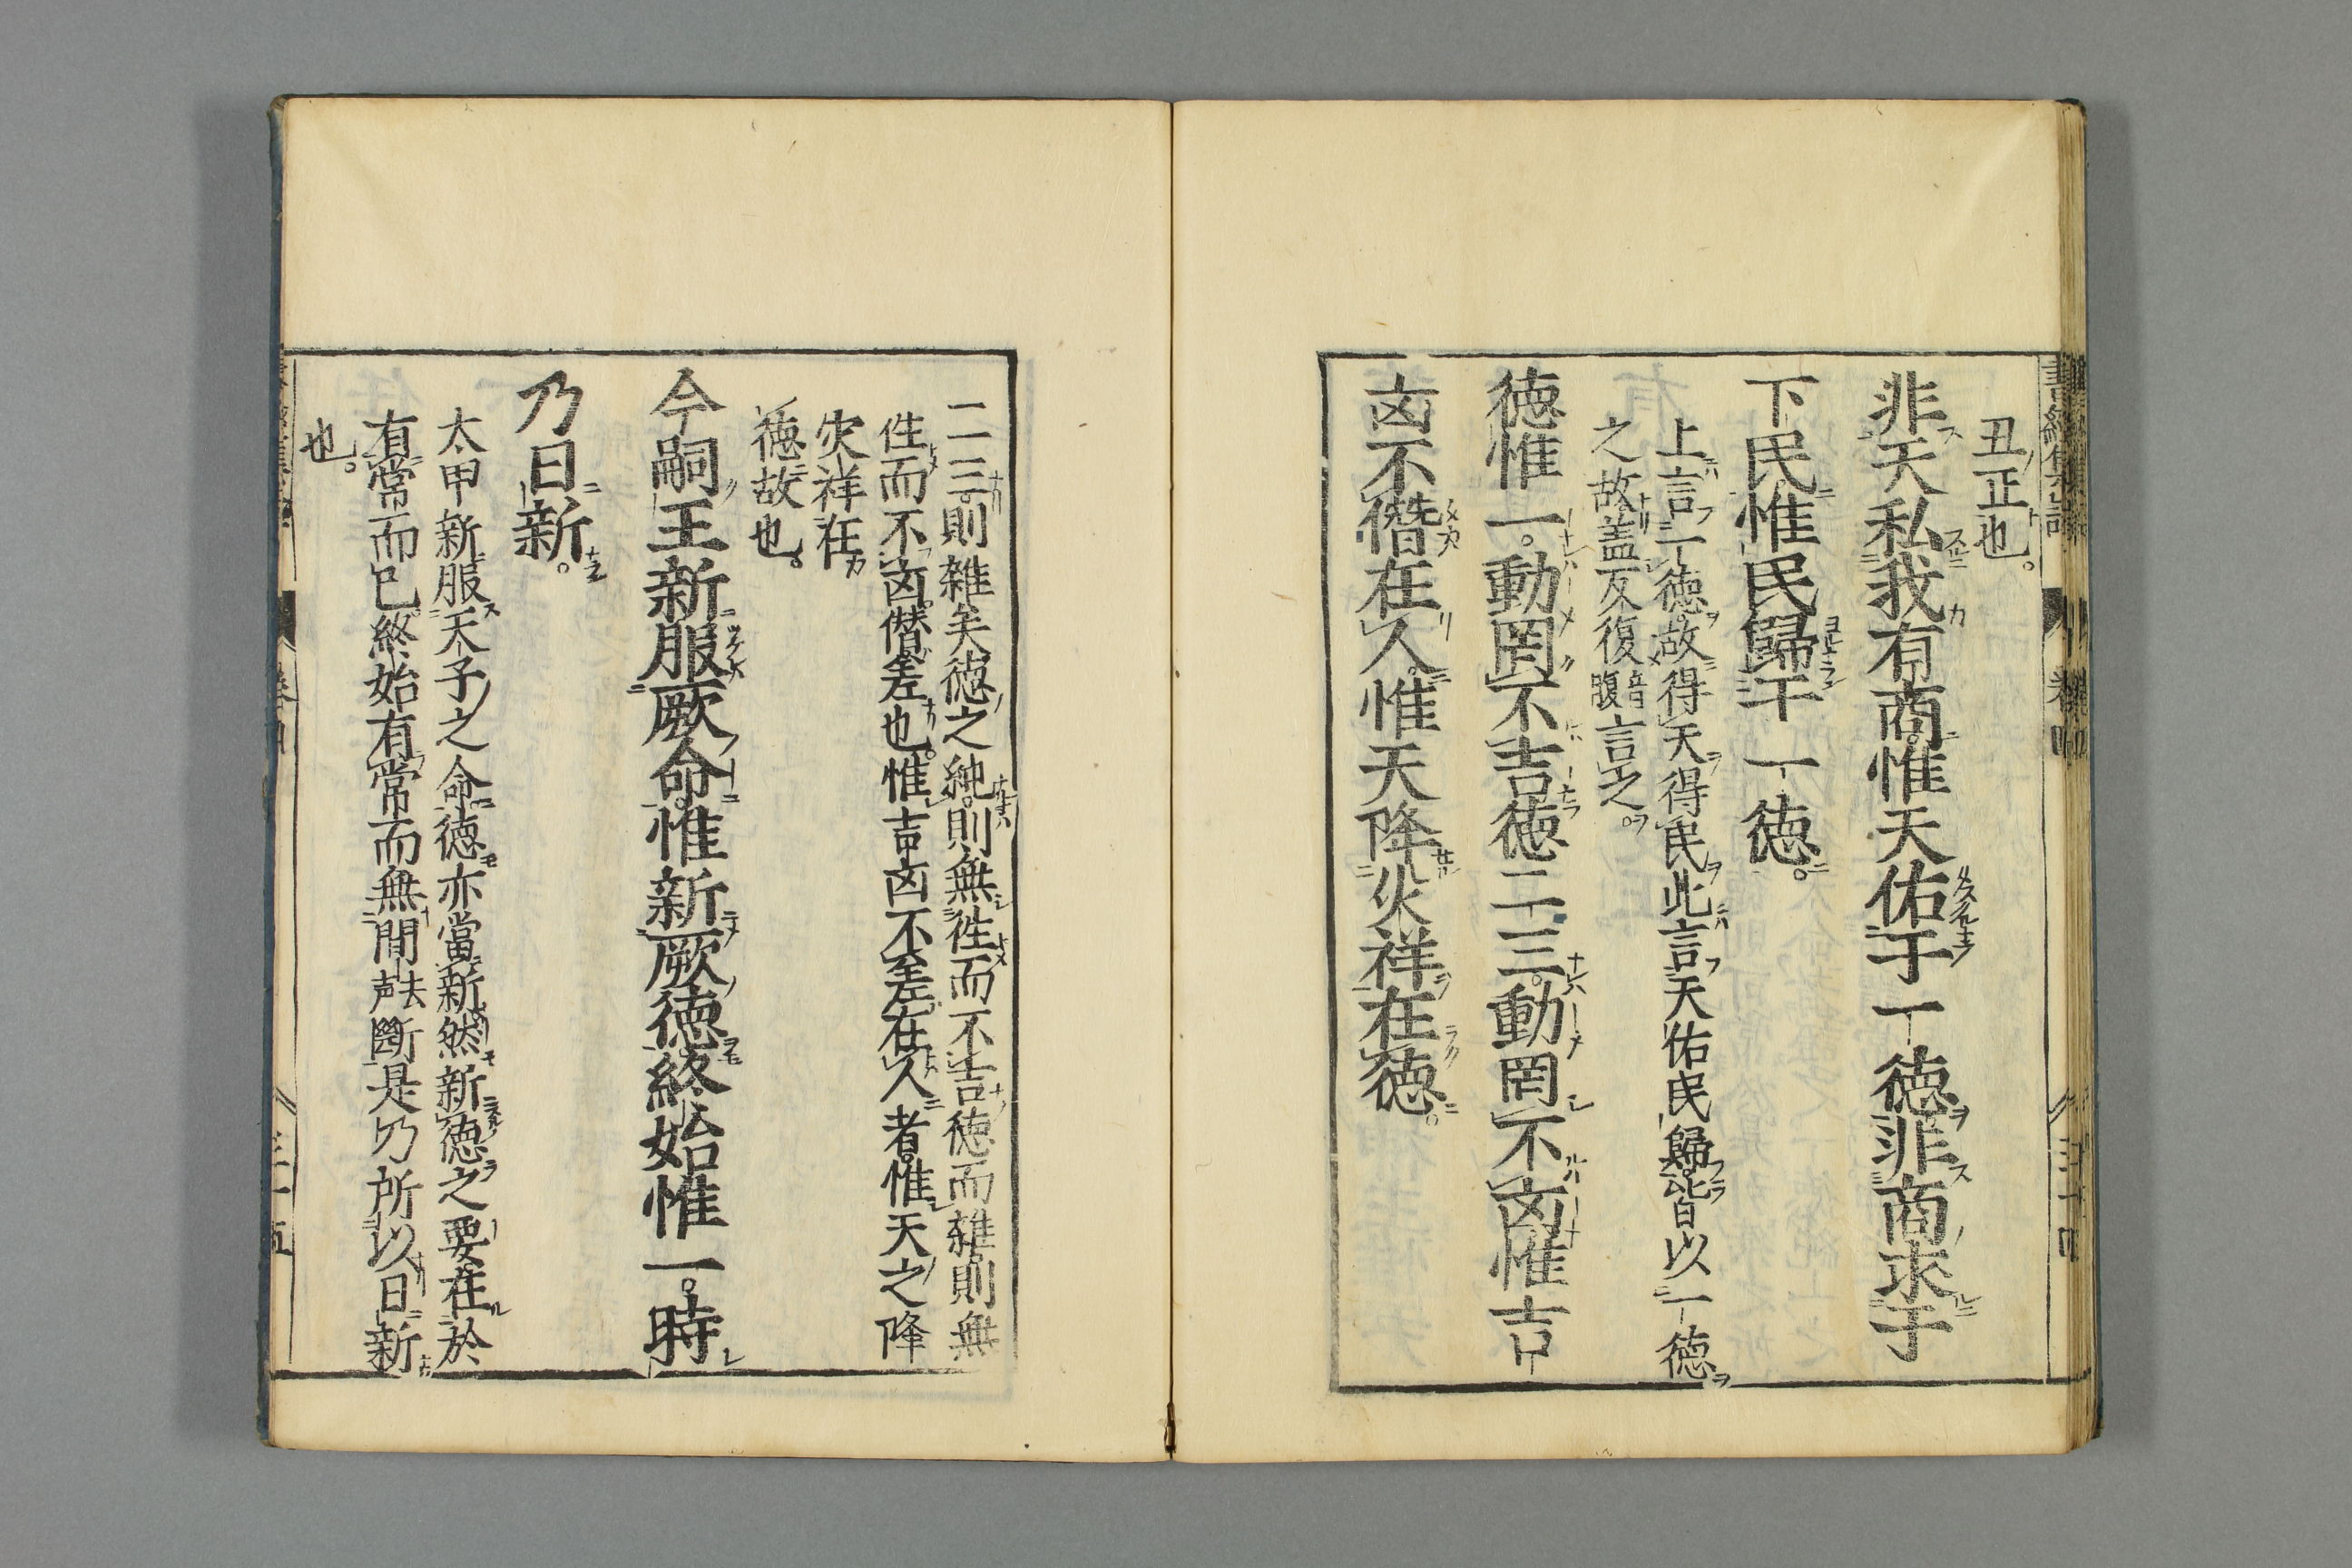 丑正也。
非天私我有商惟天佑于一徳非商求于
下民惟民歸于一徳。
上言一徳故得天得民此言天佑民歸皆以一徳
之故盖反復音腹言之。
徳惟一。動罔不吉徳二三。動罔不凶惟吉
凶不僭在人惟天降災祥在徳。
二三則雜矣徳之純則無徃而不吉徳而雜則無
徃而不凶僭差也惟吉凶不差在人者惟天之降
災祥在
徳故也。
今嗣王新服厥命惟新厥徳終始惟一。時
乃日新。
太甲新服天子之命徳亦當新然新徳之要在於
有常而已終始有常而無間去声斷是乃所以日新
也。